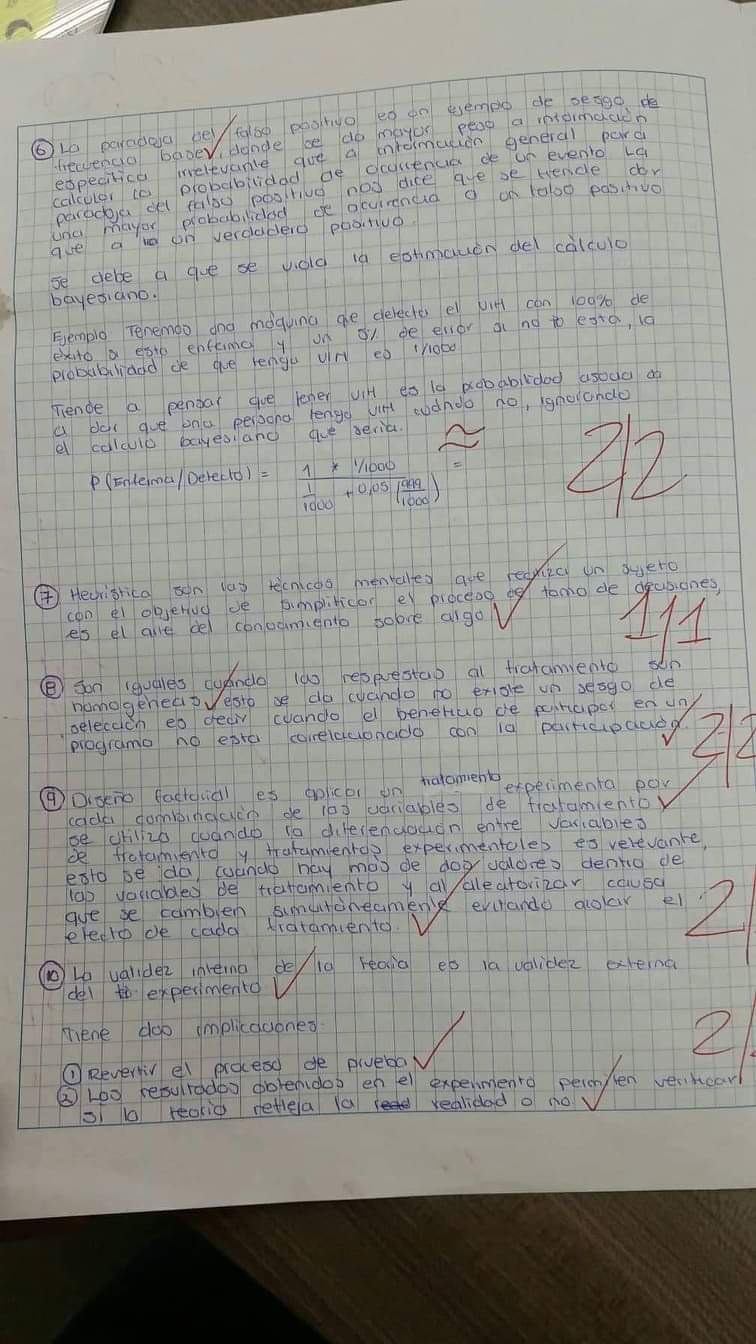 ⑥ La paradoja del falso positivo es un ejemplo de sesgo de
frecuencia base, donde se da mayor peso a información
específica irrelevante que a información general para
calcular la probabilidad de ocurrencia de un evento La
paradoja del falso positivo nos dice que se tiende dar
una mayor probabilidad de ocurrencia a un falso positivo
que a un verdadero positivo.
Se debe a que se viola la estimación del cálculo
bayesiano.
Ejemplo Tenemos una máquina que detecta el VIH con 100% de
éxito a esto enferma y un 5% de error si no lo esta, la
probabilidad de que tenga VIH es 1/1000
Tiende a pensar que tener VIH es la probabilidad asocia da
a dar que una persona tenga VIH cuando no, ignorando
el calculo bayesiano que seria.
P(Enferma/Detecto) = 1 * 1/1000 / 1/1000 + 0,05 (999/1000) ≈ =
2/2
⑦ Heurística son las técnicas mentales que realiza un sujeto
con el objetivo de simplificar el proceso de toma de decisiones,
es el arte del conocimiento sobre algo
1/1
⑧ Son iguales cuando las respuestas al tratamiento son
homogéneas, esto se da cuando no existe un sesgo de
selección es decir cuando el beneficio de participar en un
programa no esta correlacionado con la participación.
2/2
⑨ Diseño factorial es aplicar un tratamiento experimenta por
cada combinación de las variables de tratamiento
se utiliza cuando la diferenciación entre variables
de tratamiento y tratamientos experimentales es relevante,
esto se da, cuando hay mas de dos valores dentro de
las variables de tratamiento y al aleatorizar causa
que se cambien simultáneamente evitando aislar el
efecto de cada tratamiento.
2/
⑩ La validez interna de la teoria es la validez externa
del experimento
Tiene dos implicaciones:
① Revertir el proceso de prueba
2/
② Los resultados obtenidos en el experimento permiten verificar
si la teoría refleja la realidad o no